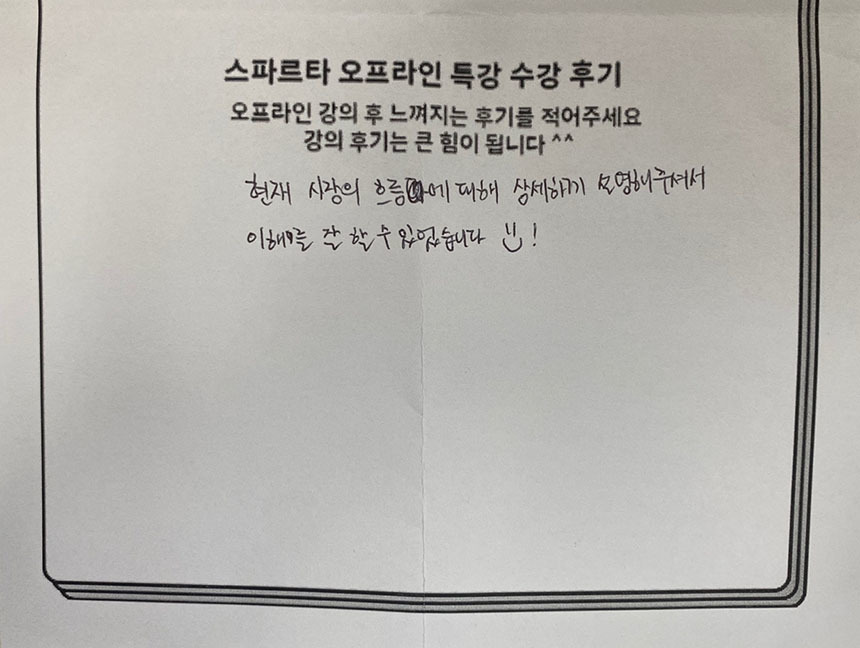 스파르타 오프라인 특강 수강 후기
오프라인 강의 후 느껴지는 후기를 적어주세요
강의 후기는 큰 힘이 됩니다 ^^
현재 시장의 흐름에 대해 상세하게 설명해주셔서
이해를 잘 할 수 있었습니다 !